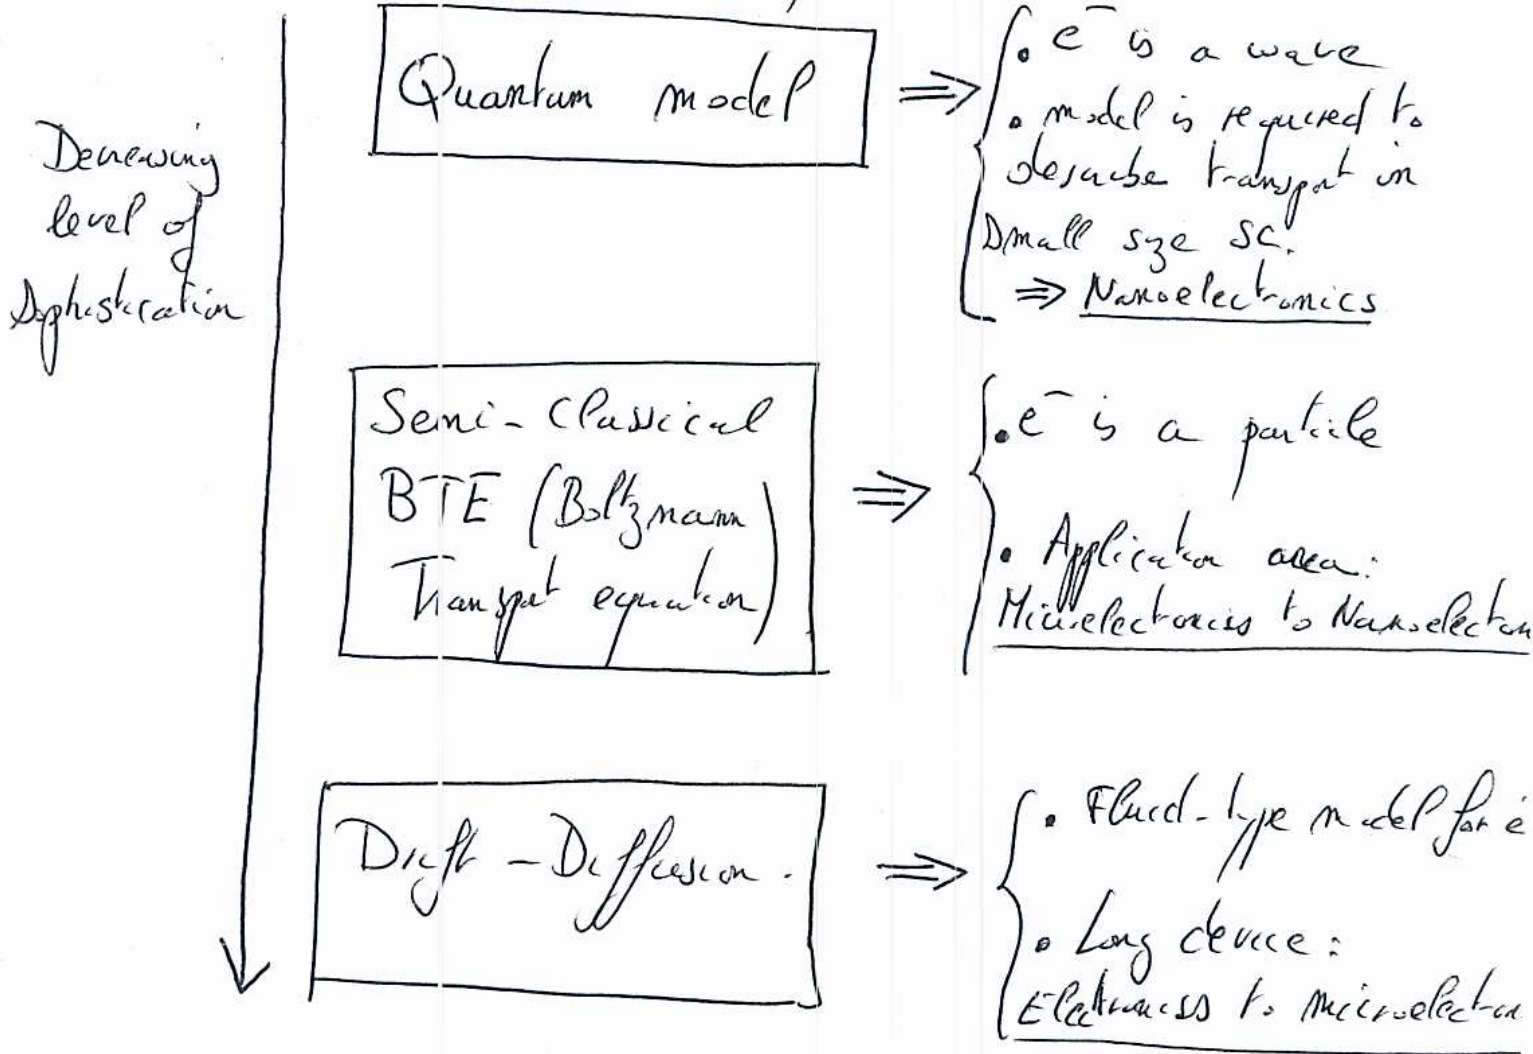 Decreasing
level of
Sophistication
Quantum model
⇒
• e⁻ is a wave
• model is required to
describe transport in
Small size SC.
⇒ Nanoelectronics
Semi-Classical
BTE (Boltzmann
Transport equation)
⇒
• e⁻ is a particle
• Application area:
Microelectronics to Nanoelectron
Drift-Diffusion.
⇒
• Fluid-type model for e⁻
• Long device:
Electronics to microelectron